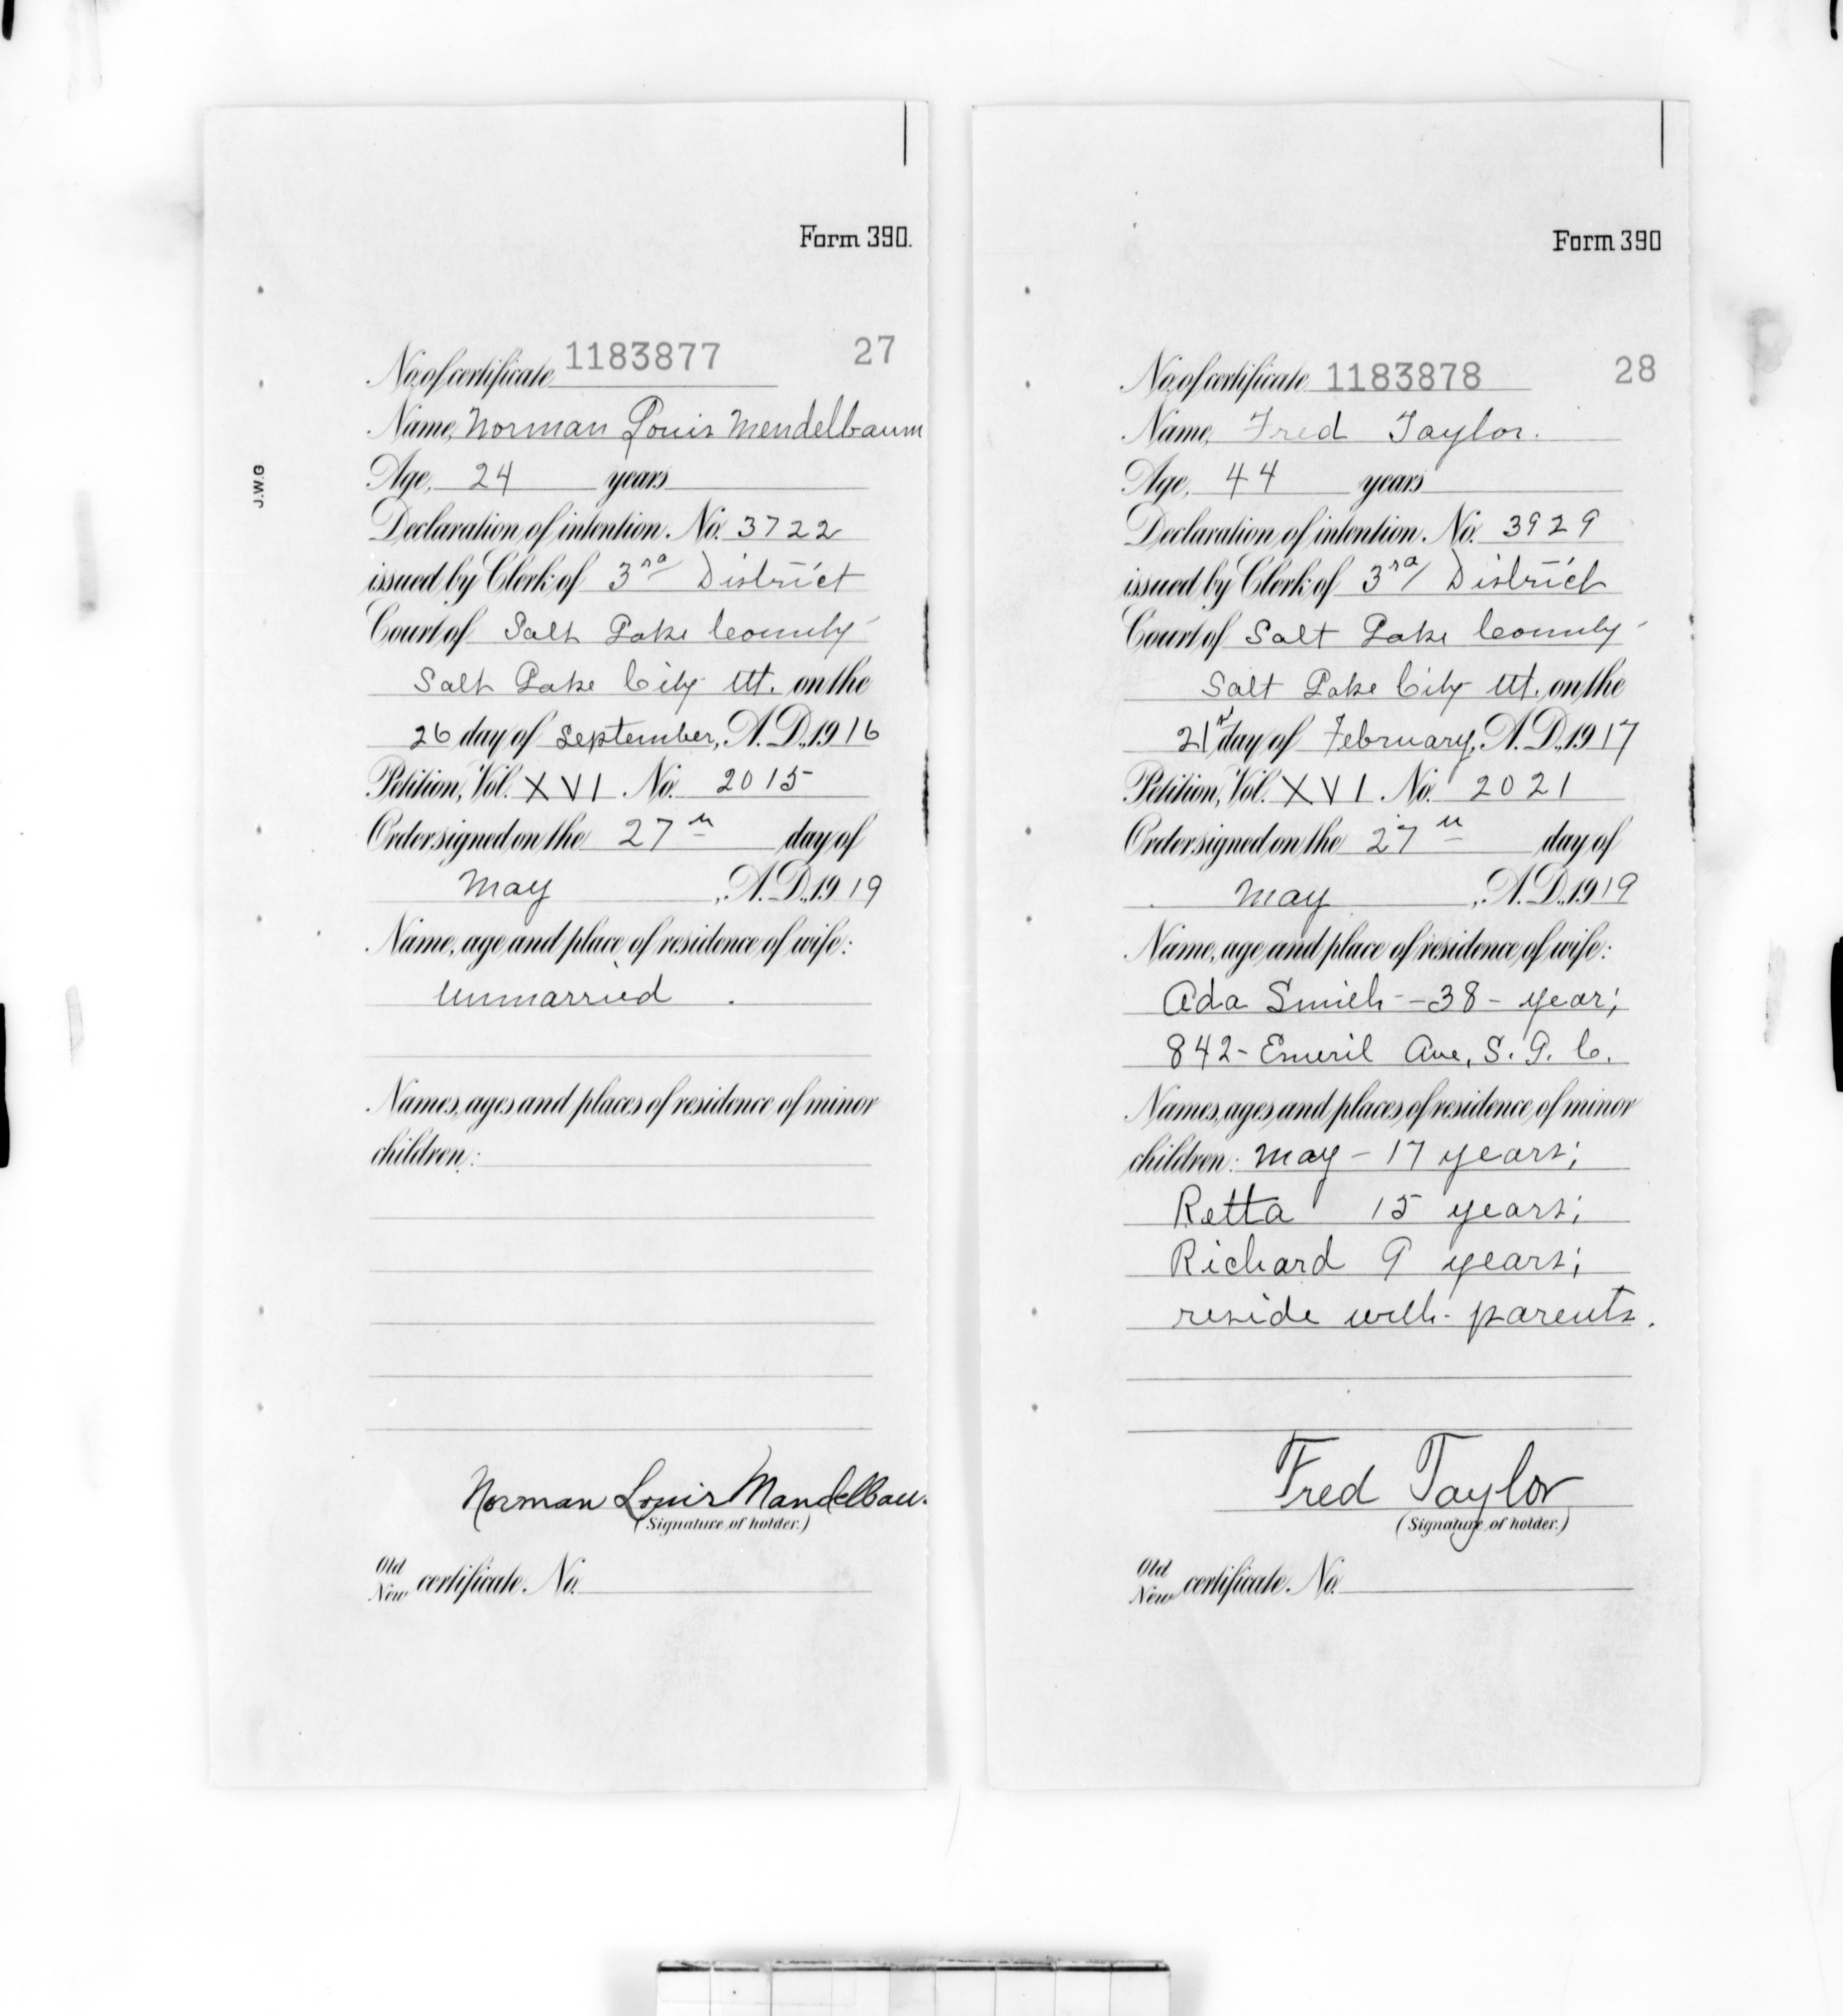 Form 390.
No. of certificate 1183877 27
Name, Norman Louis Mendelbaum
Age, 24 years
J.W.G
Declaration of intention. No. 3722
issued by Clerk of 3rd District
Court of Salt Lake County
Salt Lake City Ut. on the
26 day of September, A.D., 1916
Petition, Vol. XVI No. 2015
Order signed on the 27th day of
May, A.D., 1919
Name, age and place of residence of wife:
Unmarried.
Names, ages and places of residence of minor
children:
Norman Louis Mandelbau.
(Signature of holder.)
Old
New certificate. No.
Form 390
No. of certificate 1183878 28
Name, Fred Taylor.
Age, 44 years
Declaration of intention. No. 3929
issued by Clerk of 3rd District
Court of Salt Lake County
Salt Lake City Ut. on the
21st day of February, A.D., 1917
Petition, Vol. XVI No. 2021
Order signed on the 27th day of
May, A.D., 1919
Name, age and place of residence of wife:
Ada Smith - 38 - year;
842 - Ave, S. L. C.
Names, ages and places of residence of minor
children: May - 17 years;
Retta 15 years;
Richard 9 years;
reside with parents.
Fred Taylor
(Signature of holder.)
Old
New certificate. No.